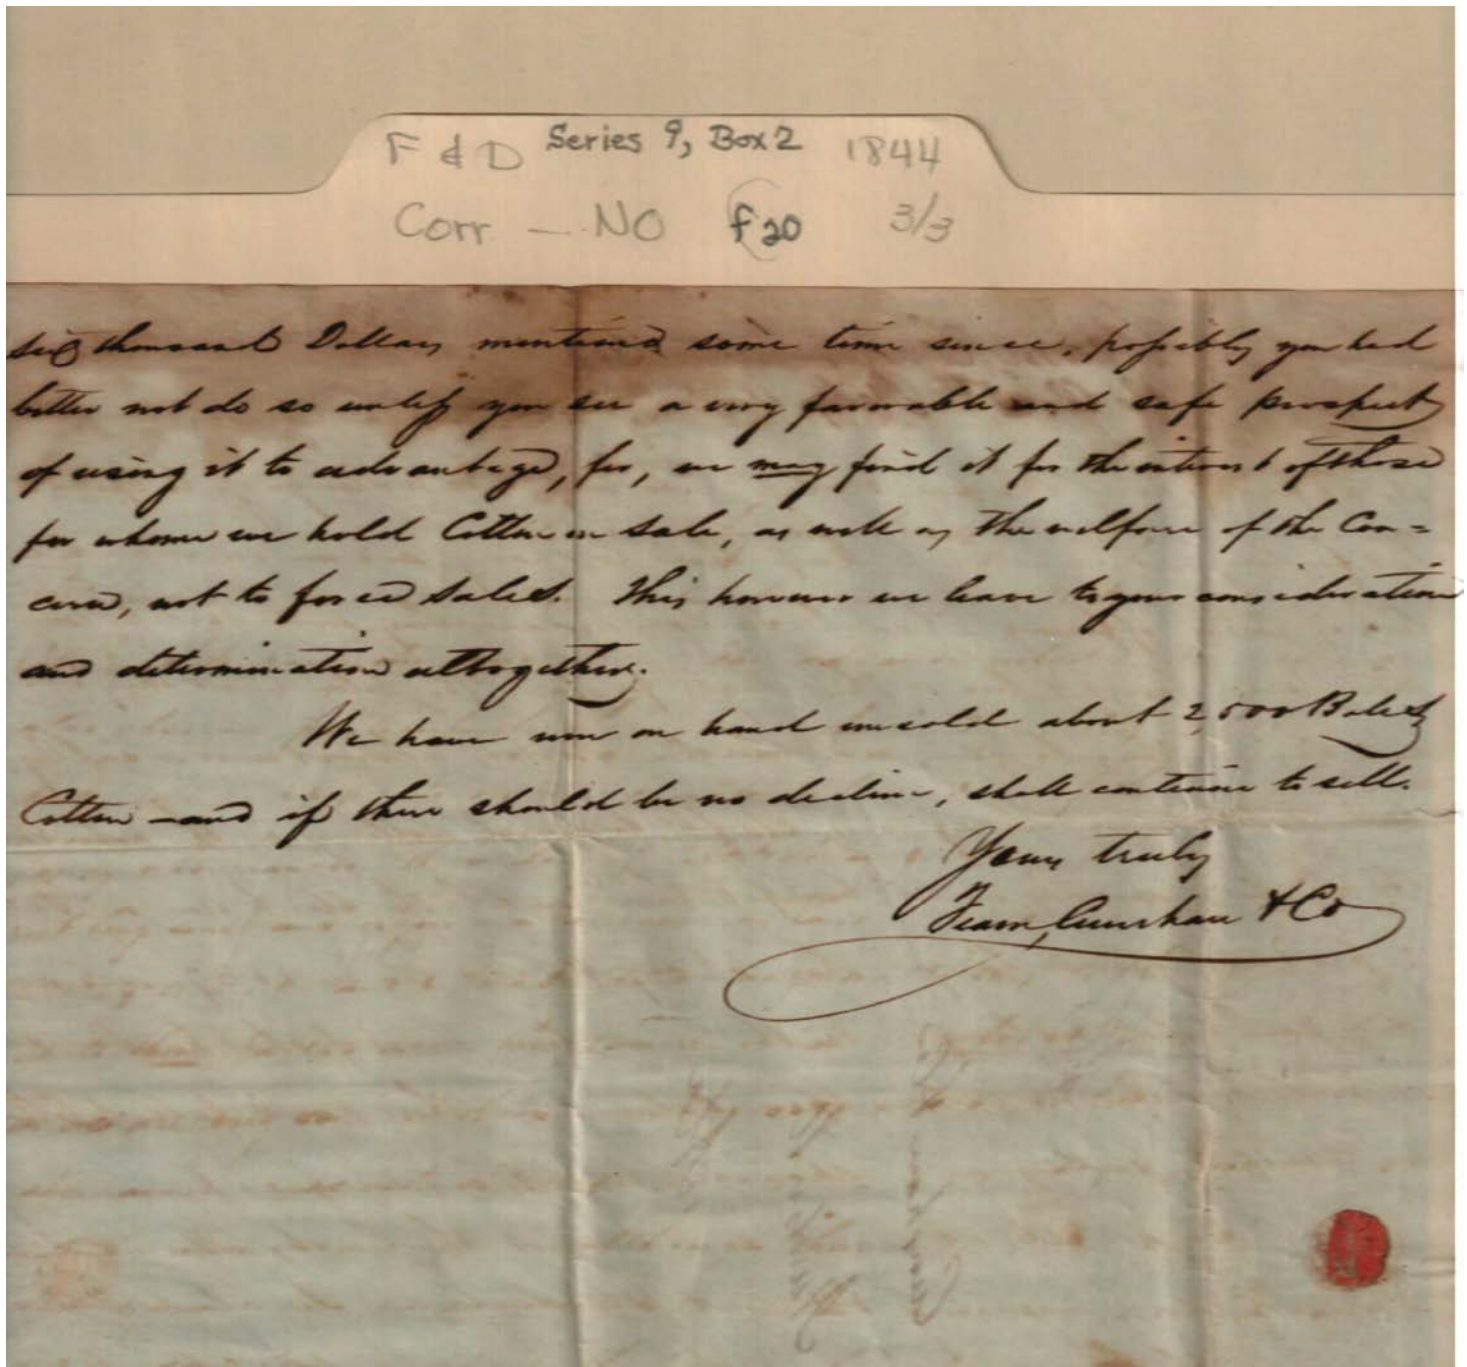 F & D Series 9, Box 2 1844
Corr — NO f 20 3/3
six thousand Dollars mentioned some time since, possibly you had
better not do so unless you see a very favorable and safe prospect
of using it to advantage, for, we may find it for the interest of those
for whom we hold Cotton on sale, as well as the welfare of the Con=
cern, not to force sales. This however we leave to your consideration
and determination altogether.
We have now on hand unsold about 2,500 Bales
Cotton — and if there should be no decline, shall continue to sell.
Yours truly
& Co